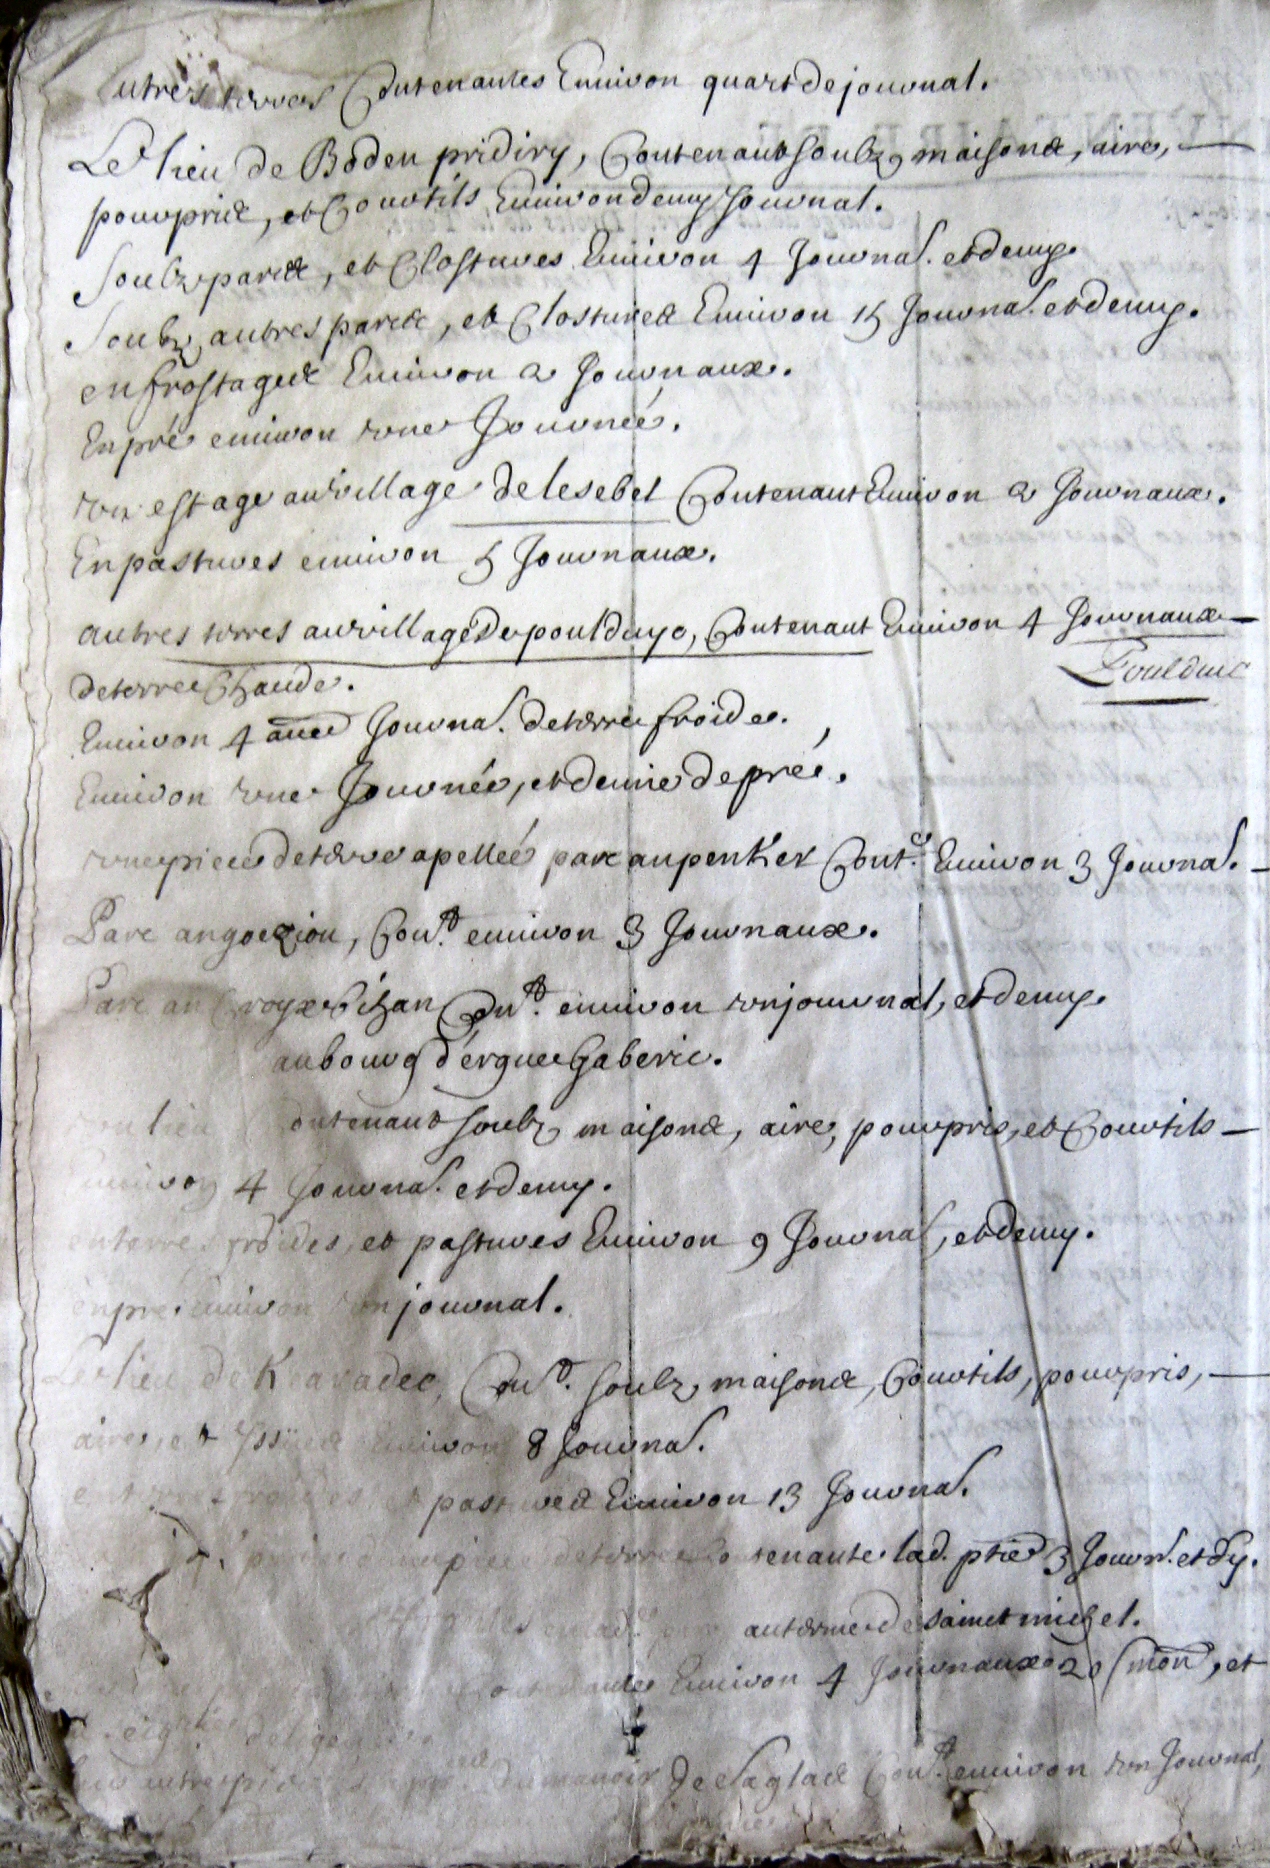 Autres terres Contenantes Environ quart de journal.
Le lieu de Boden pridiry, Contenant soubz maisons, aire,
pourpris, et Courtils Environ demy Journal.
Soubz parcs, et Clostures Environ 4 Journal. et demy.
Soubz autres parcs, et Clostures Environ 15 Journal. et demy.
en frostages Environ 2 Journaux.
En pré environ une Journée.
un estage au village de lesebel Contenant Environ 2 Journaux.
En pastures environ 5 Journaux.
autres terres au village de poulduyc, Contenant Environ 4 Journaux
Poulduic
de terre Chaude.
Environ 4 Journal. de terre froide.
Environ une Journée, et demie de pré.
une piece de terre apellée parc an penker Cont. Environ 3 Journal.
Parc an goeziou, Cont. environ 3 Journaux.
Parc an Croyx Cont. environ un journal, et demy.
au bourg d'ergue Gaberic.
un lieu Contenant soubz maisons, aire, pourpris, et Courtils
Environ 4 Journal. et demy.
en terres froides, et pastures Environ 9 Journal, et demy.
en pré environ un journal.
Le lieu de Kavadec, Cont. soubz maisons, Courtils, pourpris,
aires, et yssües Environ 8 Journal.
pastures Environ 13 Journal.
piece de terre Contenante lad. ptie 3 Journ. et dy.
au terme de sainct michel.
Contenante Environ 4 Journaux 20 et
du manoir de Cont. environ un Journal,